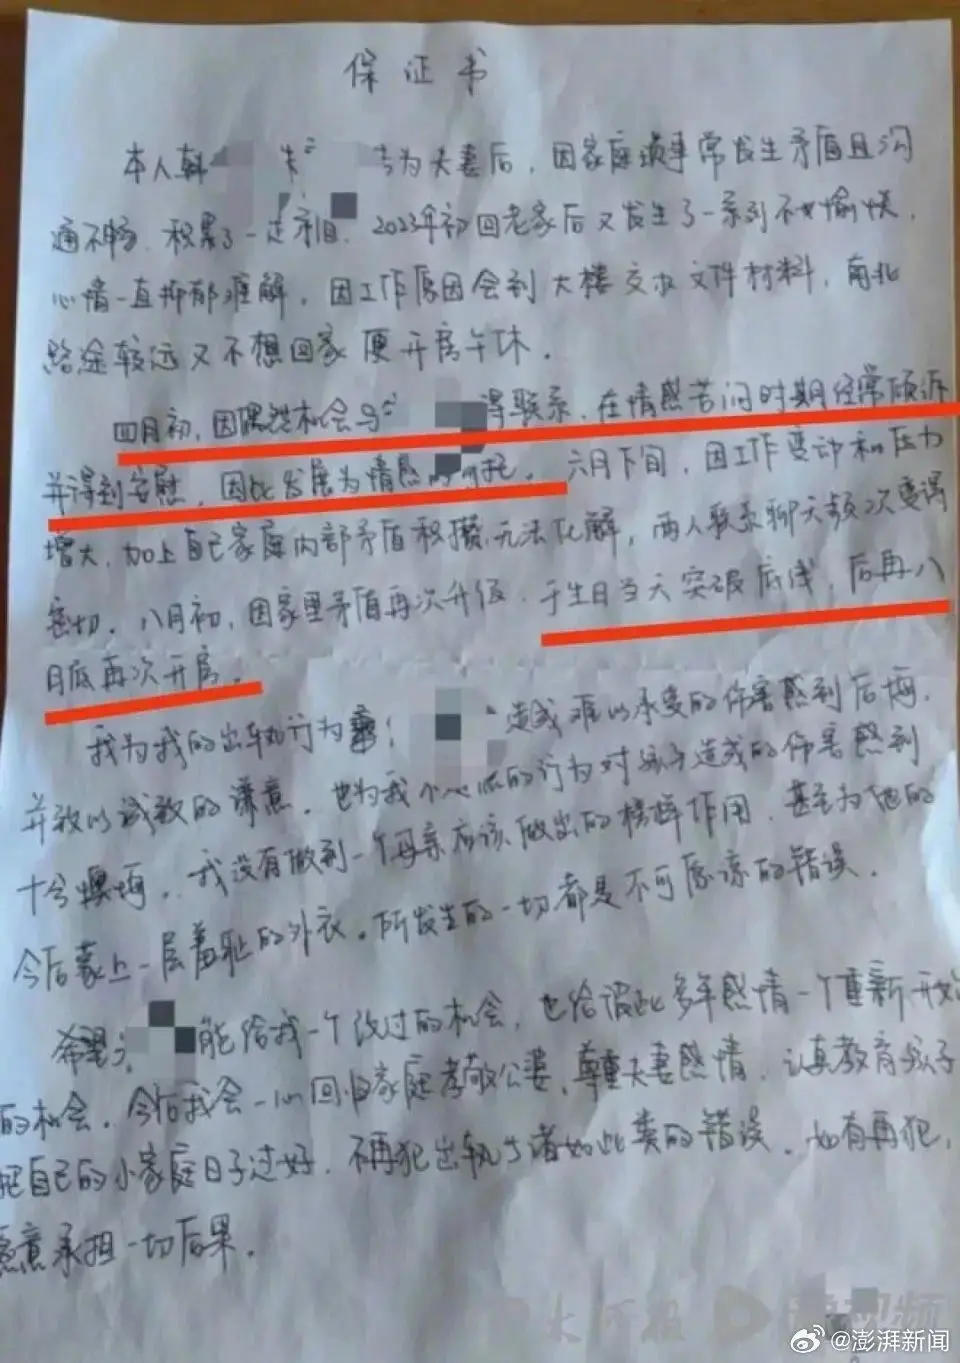 保证书
本人韩 为夫妻后，因家庭琐事常发生矛盾且沟
通不畅，积累了一些矛盾，2023年初回老家后又发生了一系列不愉快，
心情一直抑郁难解，因工作原因会到大楼交收文件材料，南北
路途较远又不想回家便开房午休。
四月初，因偶然机会与 得联系，在情感苦闷时期经常倾诉
并得到安慰，因此发展为情感的 托。六月下旬，因工作变动和压力
增大，加上自己家庭内部矛盾积攒无法化解，两人联系聊天频次变得
密切。八月初，因家里矛盾再次升级，于生日当天突破底线，后再八
月底再次开房。
我为我的出轨行为 造成难以承受的伤害感到后悔，
并致以诚致的谦意，也为我个人 的行为对孩子造成的伤害感到
十分懊悔，我没有做到一个母亲应该做出的榜样作用，甚至为他的
今后蒙上一层羞耻的外衣。所发生的一切都是不可原谅的错误。
希望 能给我一个改过的机会，也给彼此多年感情一个重新开始
的机会，今后我会一心回归家庭孝敬公婆，尊重夫妻感情，认真教育孩子
把自己的小家庭日子过好，不再犯出轨 诸如此类的错误，如有再犯，
愿意承担一切后果。
大河报 视频
@澎湃新闻